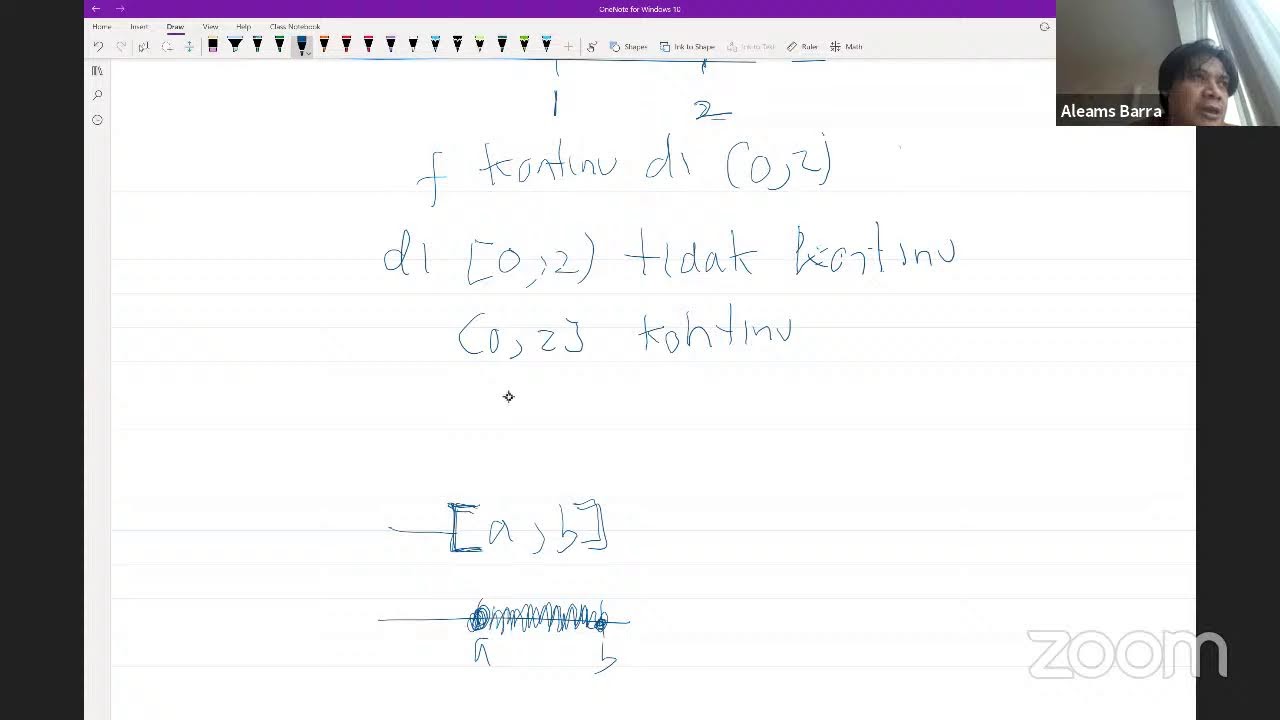 OneNote for Windows 10
Home Insert Draw View Help Class Notebook
Shapes Ink to Shape Ink to Text Ruler Math
Aleams Barra
1 2
f kontinu di (0,2)
di [0,2) tidak kontinu
(0,2] kontinu
[a,b]
a b
zoom